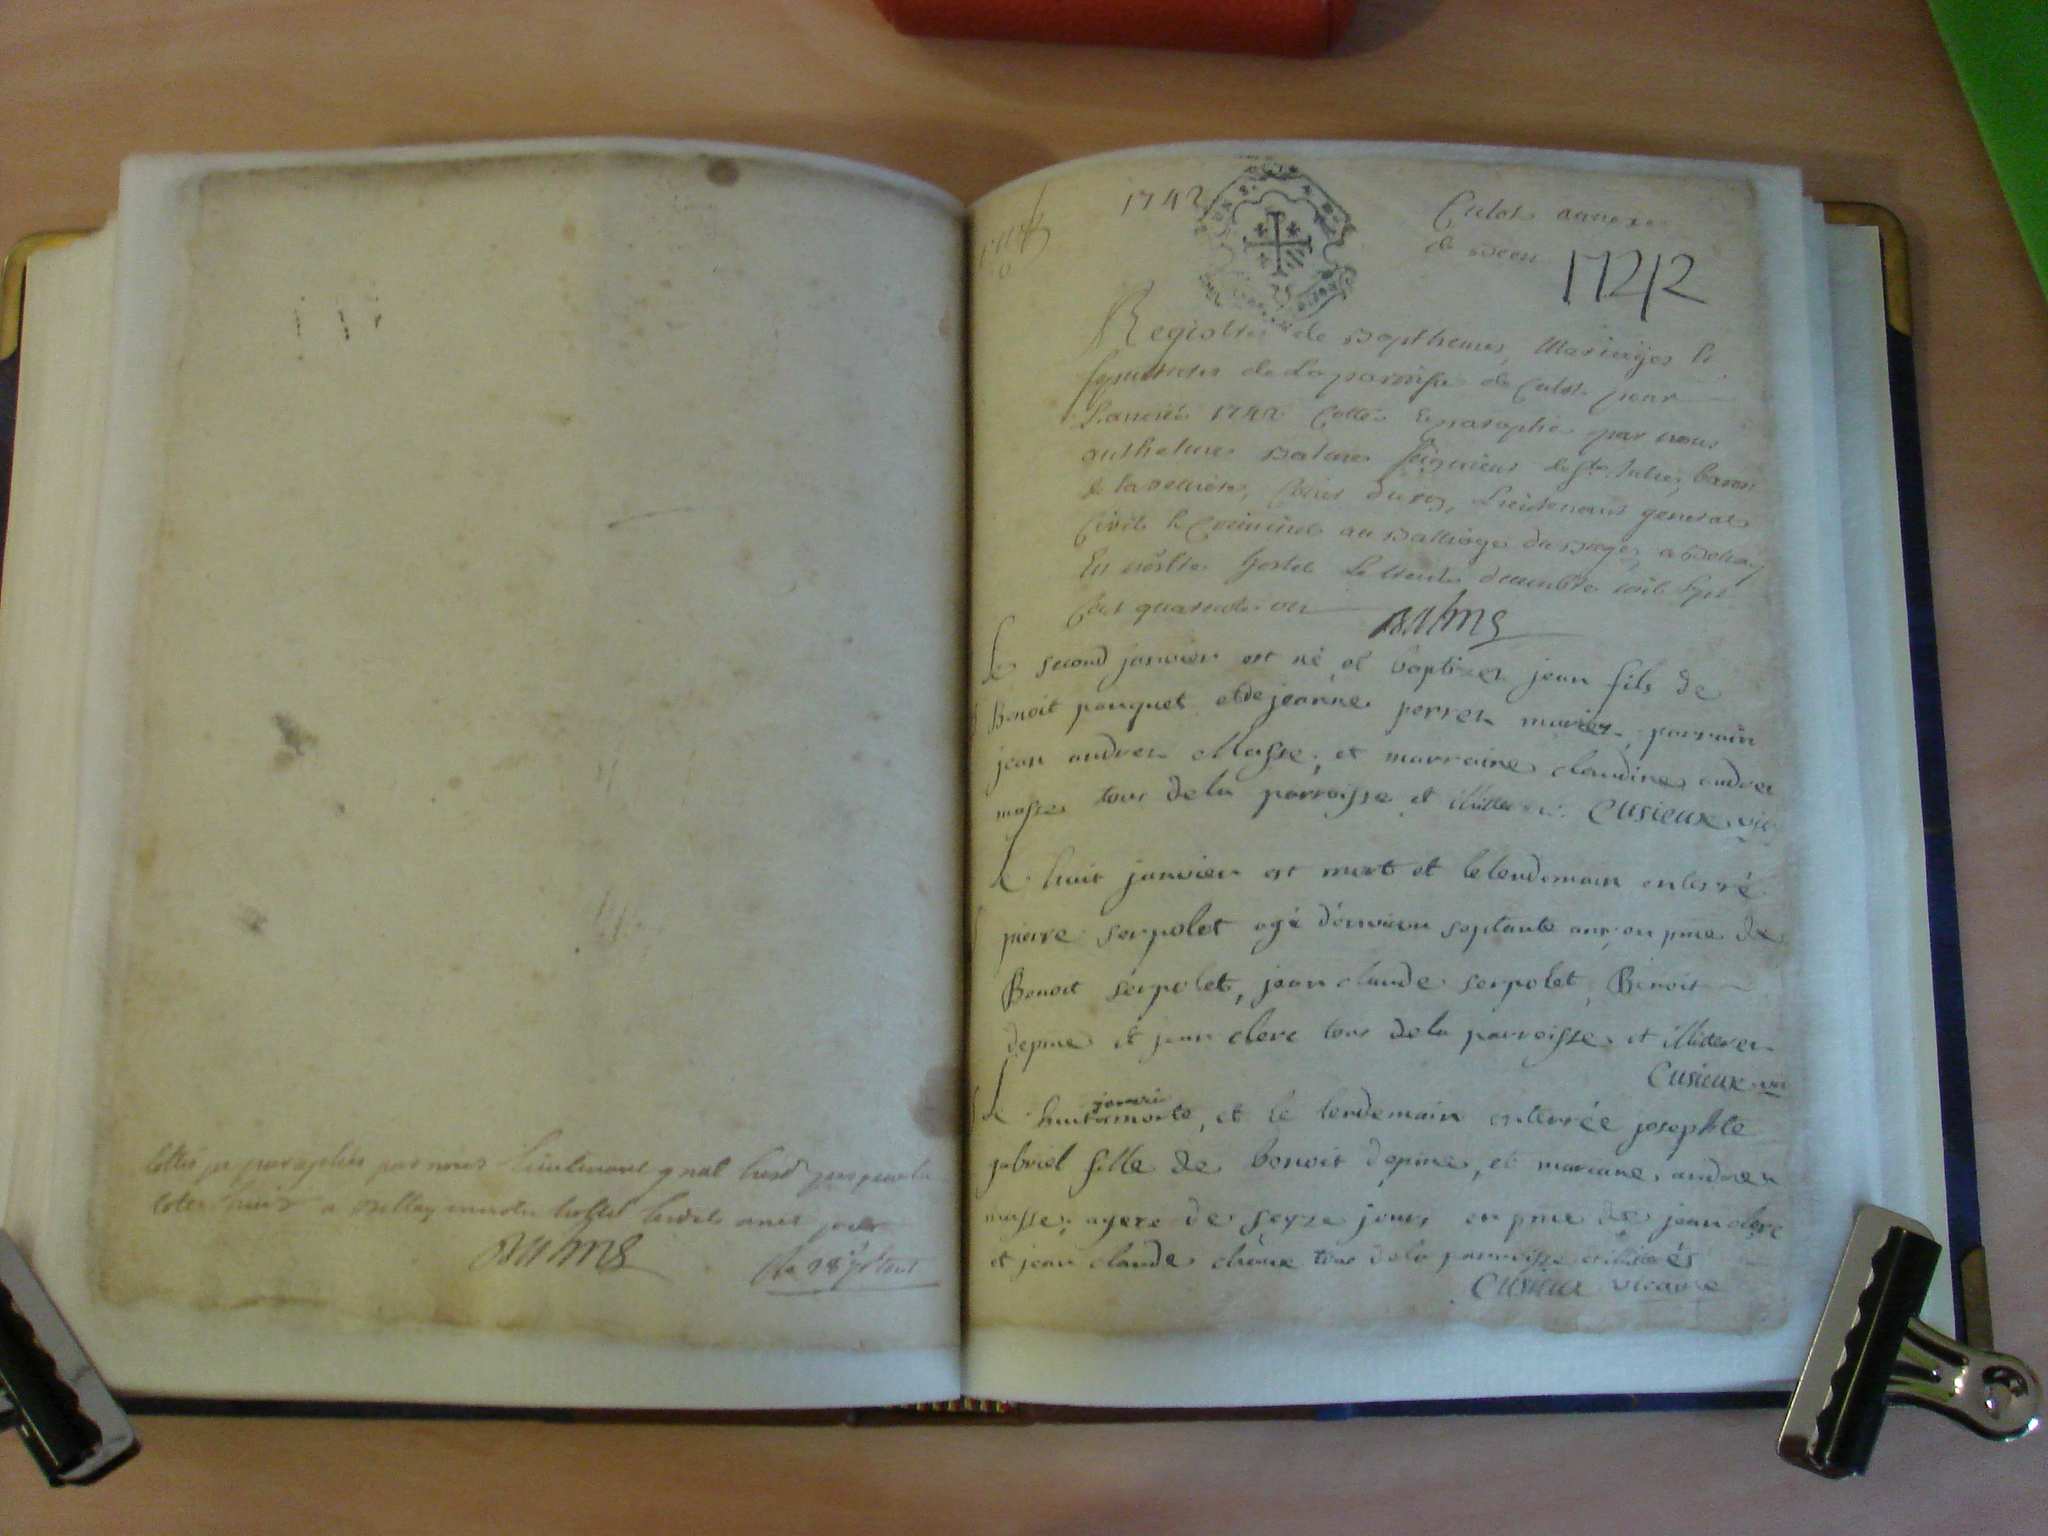 par nous Lieutenant
a Belley
Balme
1742
Culoz annexe
de Beon
1742
Registre de Bapthemes, Mariages &
sepultures de La paroisse de Culoz pour
L'année 1742 Cotté & paraphé par nous
anthelme Balme seigneur de Ste Julie, baron
de la velliere, Coner du roy, Lieutenant general
Civil & Criminel au Balliage du Bugey a Belley
En nostre hostel Le trente decembre mil sept
Cent quarante un
Balme
Le second janvier est né et baptizer jean fils de
Benoit pouguet et de jeanne perret mariez, parrain
jean andrer Masse, et marraine claudine andrer
masse tous de la parroisse et Cusieux vic
Le huit janvier est mort et le lendemain enterré
pierre serpolet agé d'environ septante ans, en pnce de
Benoit serpolet, jean claude serpolet, Benoit
depine et jean clerc tous de la parroisse et illiterer
Cusieux vic
Le huit janvi morte, et le lendemain enterrée josephte
gabriel fille de benoit depine, et mariane andrer
masse, agere de seyze jours en pnce de jean clerc
et jean claude tous de la parroisse et
Cusieux vicaire